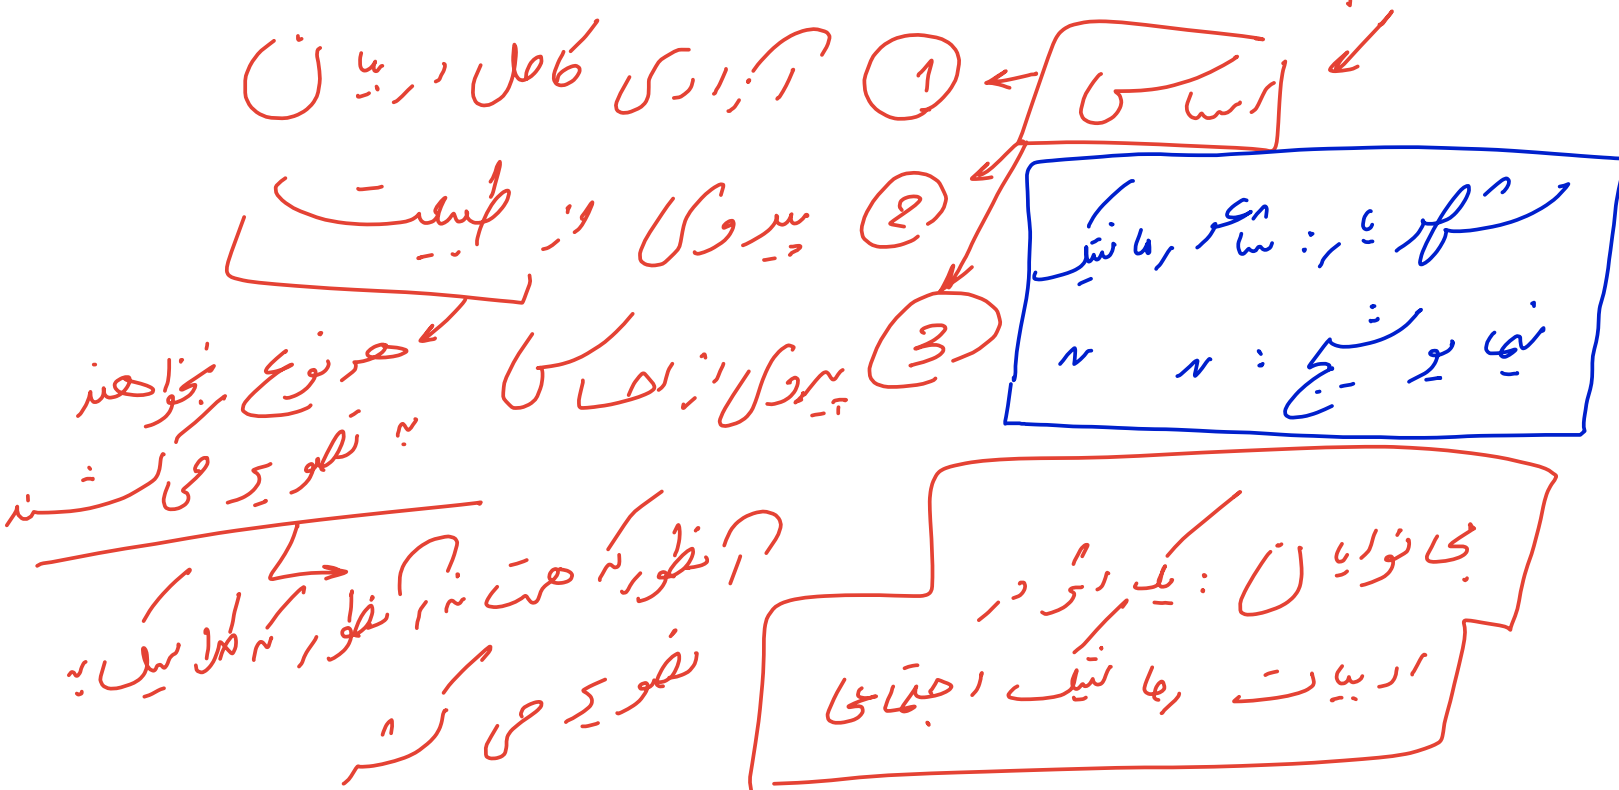 اساس
1 آزادی کامل در بیان
2 پیروی از طبیعت
3 پیروی از احساس
شهریار: شاعر رمانتیک
نیما یوشیج: " "
هر نوع بخواهند
به تصویر می کشند
آنطور که هست نه آنطور که کلاسیک به
تصویر می کشد
بینوایان: یک اثر در
ادبیات رمانتیک اجتماعی